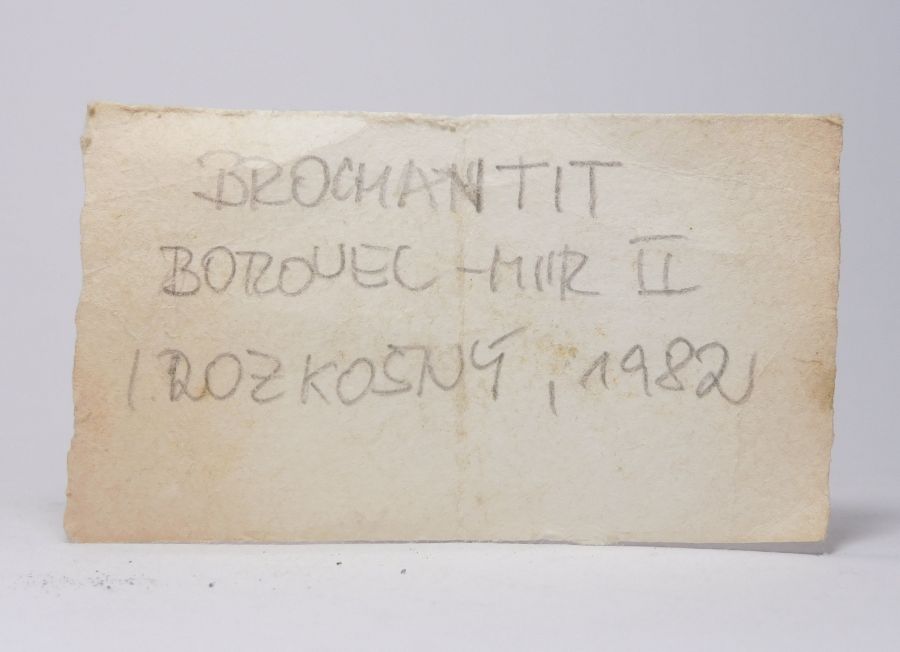 BROCHANTIT
BOROVEC - MIR II
/ ROZKOŠNÝ, 1982